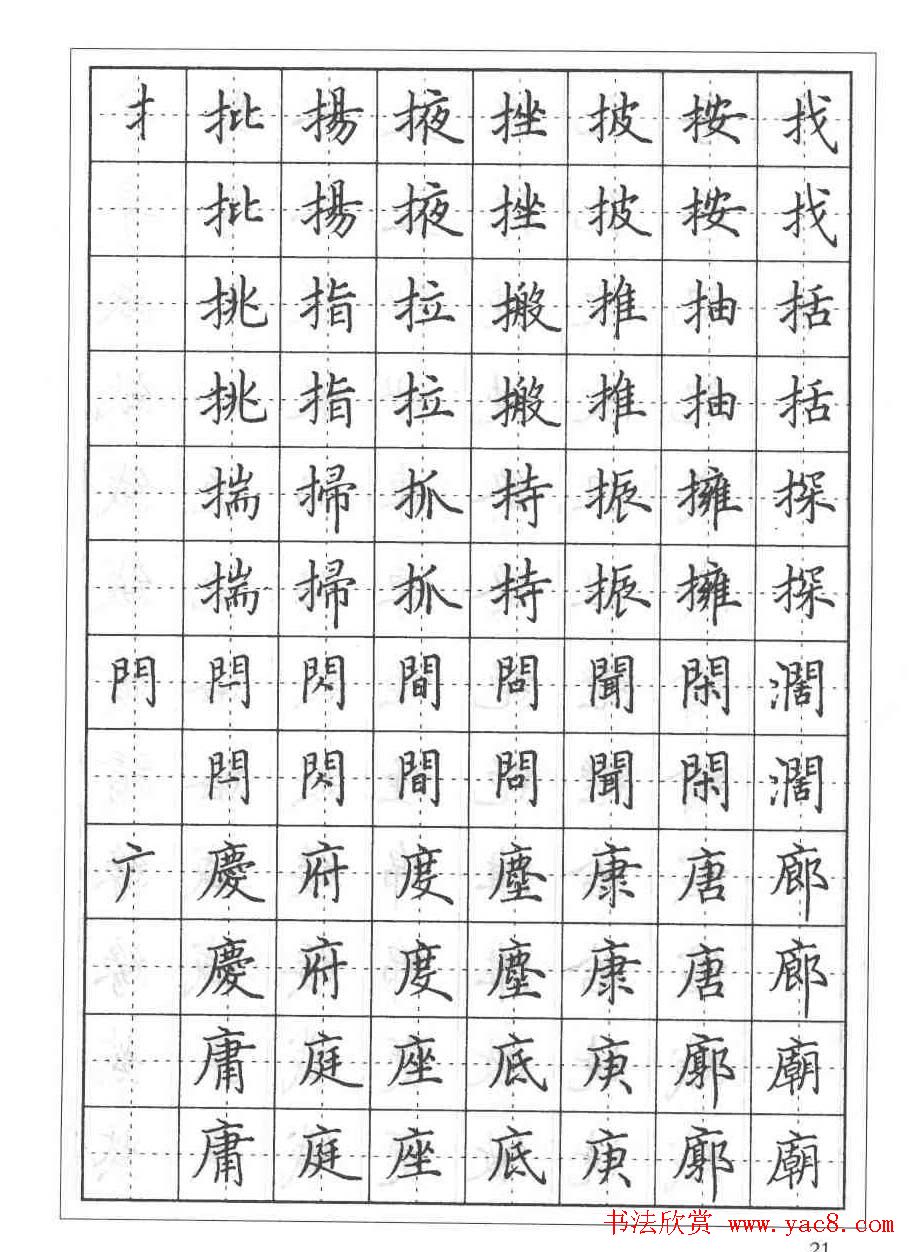 扌批揚掖挫披按找
批揚掖挫披按找
挑指拉搬推抽括
挑指拉搬推抽括
揣掃抓持振擁探
揣掃抓持振擁探
門閂閃間問聞閑濶
閂閃間問聞閑濶
广慶府度塵康唐廊
慶府度塵康唐廊
庸庭座底庚廓廟
庸庭座底庚廓廟
书法欣赏 www.yac8.com
21